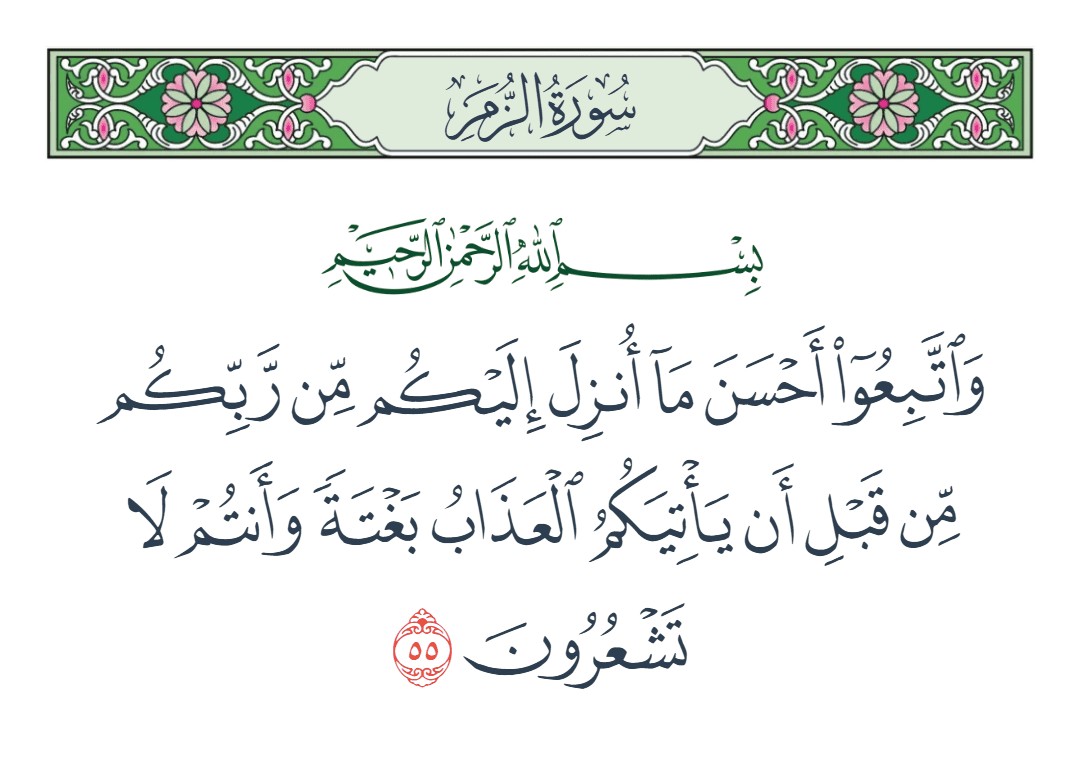 سُورَةُ الزُّمَرِ
بِسْمِ ٱللَّهِ ٱلرَّحْمَٰنِ ٱلرَّحِيمِ
وَٱتَّبِعُوٓا۟ أَحْسَنَ مَآ أُنزِلَ إِلَيْكُم مِّن رَّبِّكُم
مِّن قَبْلِ أَن يَأْتِيَكُمُ ٱلْعَذَابُ بَغْتَةً وَأَنتُمْ لَا
تَشْعُرُونَ ٥٥